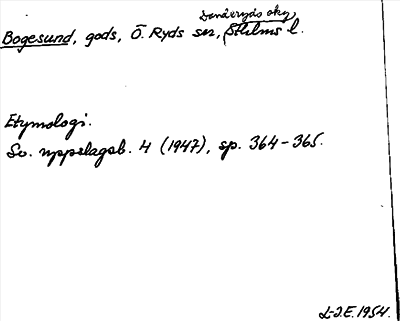 Danderyds skg,
Bogesund, gods, Ö. Ryds sn, Sthlms l.
Etymologi.
Sv. uppslagsb. 4 (1947), sp. 364-365.
L-I.E. 1954.